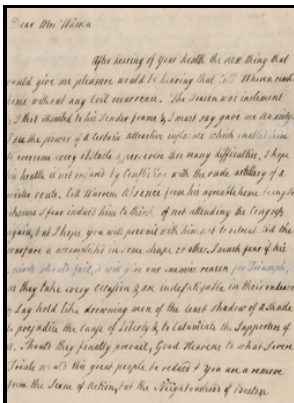 Dear Mrs Warren
After hearing of your health the next thing that
would give me pleasure would be hearing that Coll Warren reach
home without any Evil occurrence. The Season was inclement
& that to his tender frame & I must say gave me Anxiety
the power of a Certain attractive influence which enables him
to overcome every obstacle & persevere thro many difficulties. I hope
his health is not injured by Conflicting with the rude artillery of a
winter route. Coll Warrens Absence from his agreeable home being so
I fear induced him to think of not attending the Congress
again, but I hope you will prevail with him not to retreat till the
warfare is accomplished in some shape or other. I much fear if his
should fail, it will give one reason for Triumph,
as they take every occasion & are indefatigable in their endeavors
& lay hold like drowning men of the least shadow of a Shade
to prejudice the Cause of Liberty & to Calumniate the Supporters of
it. Should they finally prevail, Good Heavens to what Severe
Trials would this great people be reduced. You are a remove
from the Scene of Action, but the Neighbourhood of Boston